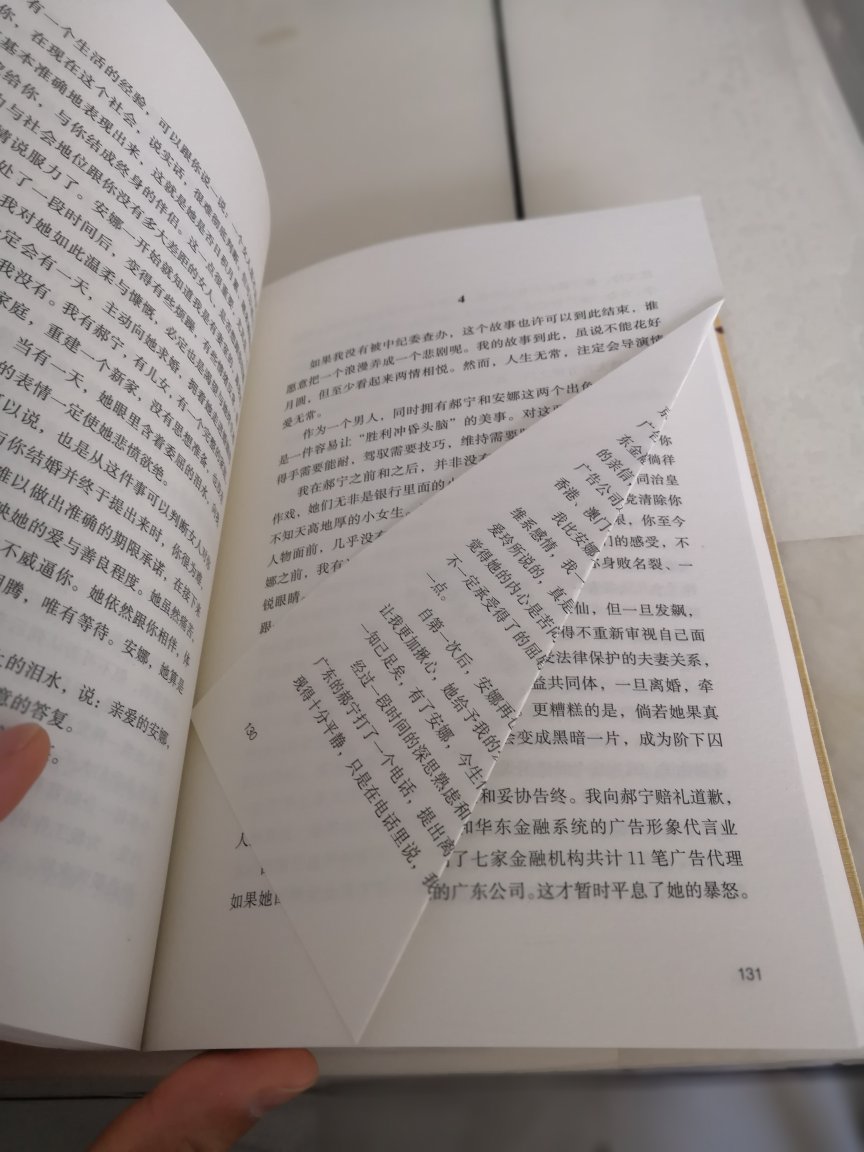 有一个生活的经验，可以跟你说一说：一个女人
你，在现在这个社会，说实话，很难彻底判断，
基本准确地表现出来，这就是她是否日积月累，
给你，与你结成终身的伴侣。这一点很重要，
与社会地位跟你没有多大差距的女人，是否
情说服力了。安娜一开始就知道我是有妻室
处了一段时间后，变得有些烦躁，有些
我对她如此温柔与慷慨，必定也是渴望
定会有一天，主动向她求婚，拥着她走进
我没有。我有郝宁，有儿女，有一个完整的
家庭，重建一个新家，没有思想准备，
当有一天，她眼里含着委屈的泪水，向我
的表情一定使她悲愤欲绝。
可以说，也是从这件事可以判断女人对你
与你结婚并终于提出来时，你很为难，
难以做出准确的期限承诺，在接下来
映她的爱与善良程度。她虽然痛苦，
不威逼你。她依然跟你相伴，体
翻腾，唯有等待。安娜，她真是
的泪水，说：亲爱的安娜，
意的答复。
4
如果我没有被中纪委查办，这个故事也许可以到此结束，谁
愿意把一个浪漫弄成一个悲剧呢。我的故事到此，虽说不能花好
月圆，但至少看起来两情相悦。然而，人生无常，注定会导演情
爱无常。
作为一个男人，同时拥有郝宁和安娜这两个出色
是一件容易让“胜利冲昏头脑”的美事。对这两
得手需要能耐，驾驭需要技巧，维持需要
我在郝宁之前和之后，并非没有
作戏，她们无非是银行里面的小
不知天高地厚的小女生。
人物面前，几乎没有
娜之前，我有
锐眼睛
跟
你
徜徉
同治皇
竟清除你
限，你至今
们的感受，不
你身败名裂、一
仙，但一旦发飙，
得不重新审视自己面
受法律保护的夫妻关系，
益共同体，一旦离婚，牵
更糟糕的是，倘若她果真
会变成黑暗一片，成为阶下囚
和妥协告终。我向郝宁赔礼道歉，
人 和华东金融系统的广告形象代言业
了七家金融机构共计11笔广告代理
如果她 的广东公司。这才暂时平息了她的暴怒。
131
广
东金
的亲信
广告公司
香港、澳门
维系感情，我
我比安娜
爱玲所说的，真是
觉得她的内心是苦
不一定承受得了的屈
一点。
自第一次后，安娜再
让我更加揪心，她给予我的
一知己足矣，有了安娜，今生
经过一段时间的深思熟虑和
广东的郝宁打了一个电话，提出离
现得十分平静，只是在电话里说，我
130